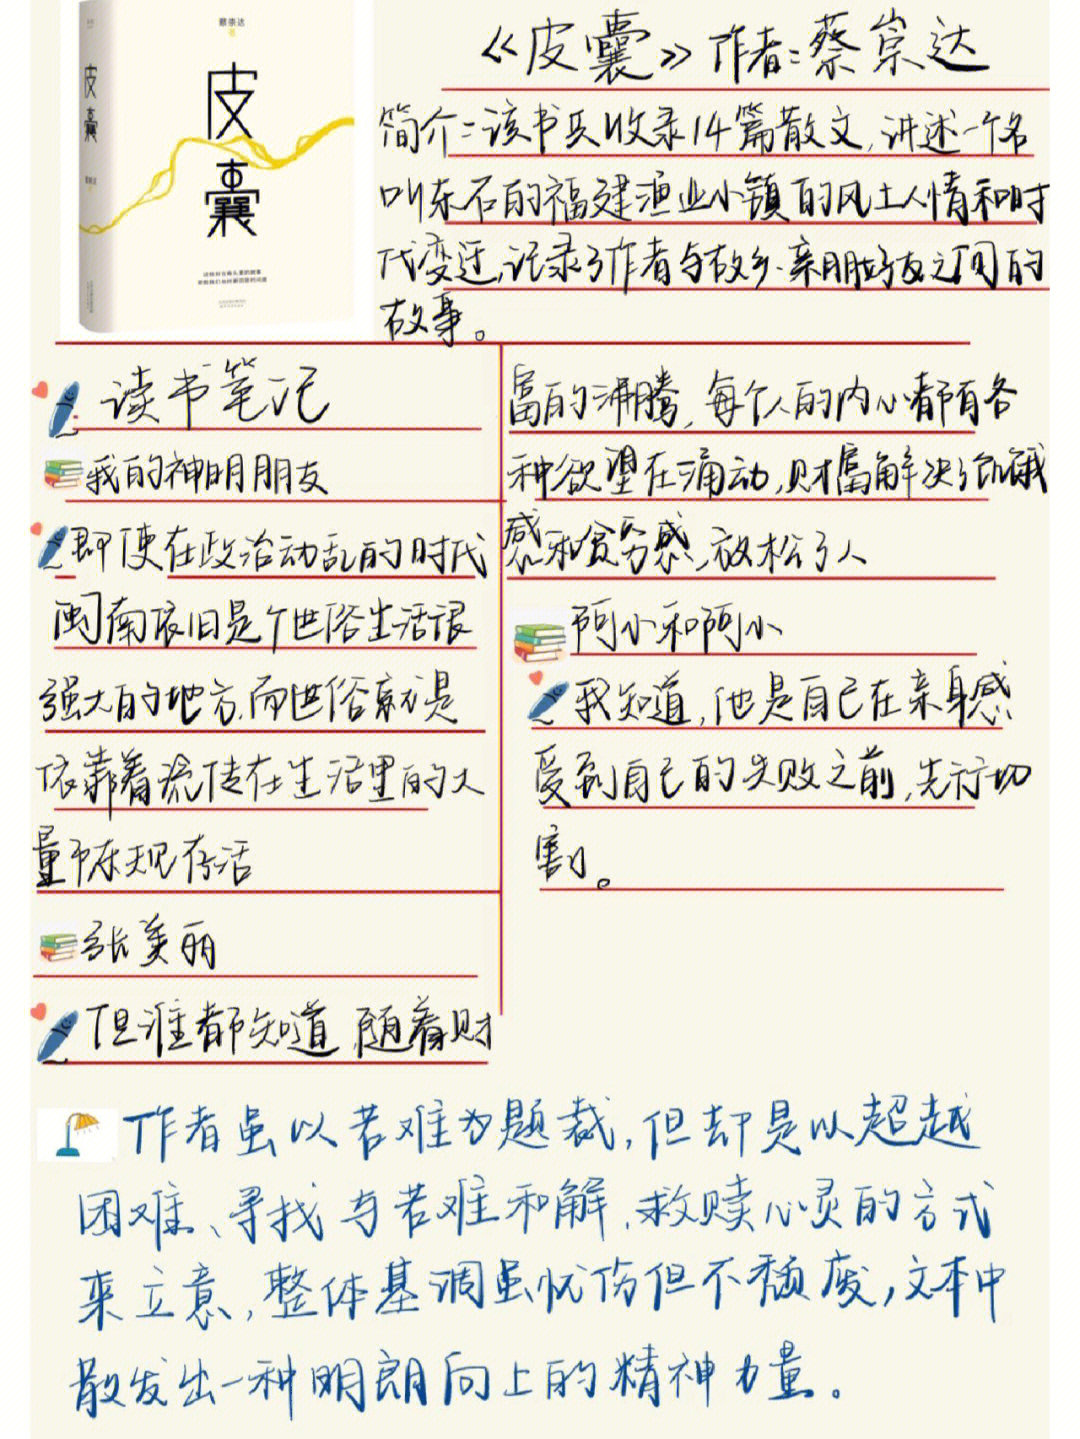 蔡崇达
著
皮
囊
皮囊
《皮囊》作者：蔡崇达
简介：该书共收录14篇散文，讲述一个名
叫东石的福建渔业小镇的风土人情和时
代变迁，记录了作者与故乡、亲朋好友之间的
故事。
读书笔记
我的神明朋友
即使在政治动乱的时代
闽南依旧是个世俗生活很
强大的地方，而世俗就是
依靠着流传在生活里的大
量陈规存活
张美丽
但谁都知道，随着财
富的沸腾，每个人的内心都有各
种欲望在涌动，财富解决了饥饿
感和贫穷感，放松了人
阿小和阿小
我知道，他是自己在亲身感
受到自己的失败之前，先行切
割。
作者虽以苦难为题裁，但却是以超越
困难、寻找与苦难和解，救赎心灵的方式
来立意，整体基调虽忧伤但不颓废，文本中
散发出一种明朗向上的精神力量。